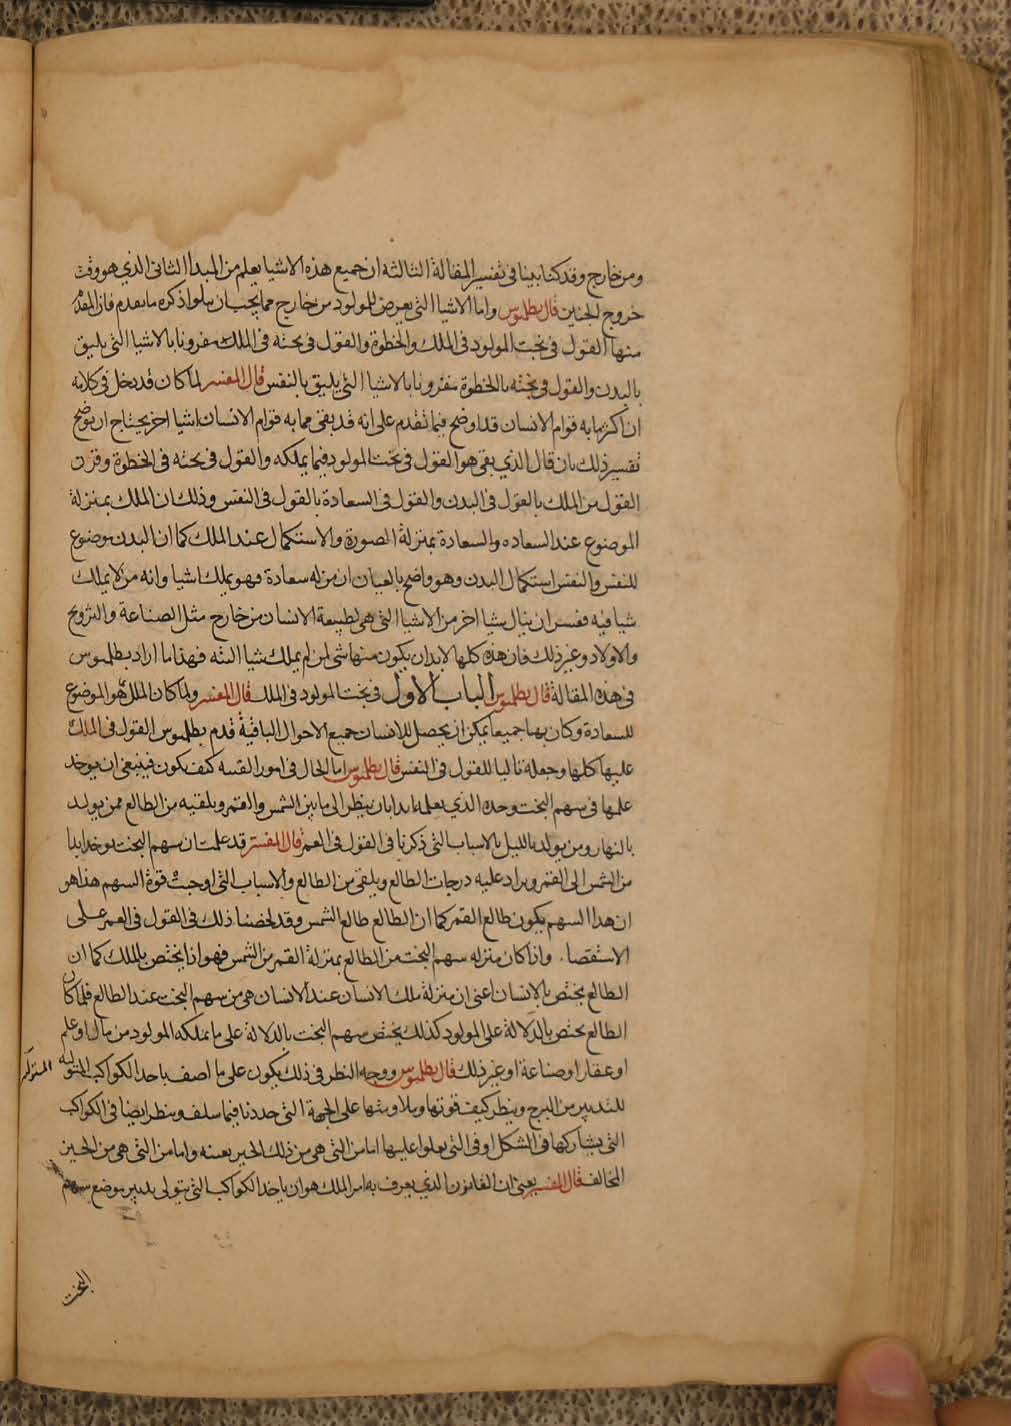 ومن خارج وقد كنا بينا فى تفسير المقالة الثالثه ان جميع هذه الاشيا يعلم من المبدا الثانى الذي هو وقت
خروج الجنين قال بطلموس واما الاشيا التى يعرض للمولود من خارج مما يجب ان يتلوا ذكره ما تقدم فان المقدم
منها القول فى بخت المولود فى الملك والخطوة والقول فى بخته فى الملك مقرونا بالاشيا التى يليق
بالبدن والقول فى بخته بالخطوة مقرونا بالاشيا التى يليق بالنفس قال المفسر لما كان قد دخل فى كلامه
ان اكثر ما به قوام الانسان قد اوضح فيما تقدم على انه قد بقى مما به قوام الانسان اشيا اخر يحتاج ان يوضح
تفسير ذلك بان قال الذي بقى هو القول فى بخت المولود فيما يملكه والقول فى بخته فى الخطوة وقرن
القول من الملك بالقول فى البدن والقول فى السعادة بالقول فى النفس وذلك ان الملك بمنزلة
الموضوع عند السعاده والسعادة بمنزلة الصورة والاستكمال عند الملك كما ان البدن موضوع
للنفس والنفس استكمال البدن وهو واضح بالعيان ان من له سعادة فهو يملك اشيا وانه من لا يملك
شيا فيه فعسر ان ينال شيا اخر من الاشيا التى هى لطبيعة الانسان من خارج مثل الصناعة والتزويج
والاولاد وغير ذلك فان هذه كلها لابد ان يكون منها شى لمن لم يملك شيا البته فهذا ما اراد بطلموس
فى هذه المقالة قال بطلموس الباب الاول فى بخت المولود فى الملك قال المفسر ولما كان الملك هو الموضوع
للسعادة وكان بهما جميعا يمكن ان يحصل للانسان جميع الاحوال الباقية قدم بطلموس القول فى الملك
عليها كلها وجعله تاليا للقول فى النفس قال بطلموس اما الحال فى امور القنيه كيف يكون فينبغى ان يوخذ
علمها فى سهم البخت وحده الذي يعلمه ابدا بان ينظر الى ما بين الشمس والقمر ويلقيه من الطالع ممن يولد
بالنهار ومن يولد بالليل بالاسباب التى ذكرنا فى القول فى العمر قال المفسر قد علمت ان سهم البخت يوخذ ابدا
من الشمس الى القمر ويزاد عليه درجات الطالع ويلقى من الطالع والاسباب التى اوجبت قوة السهم هذا هو
ان هذا السهم يكون طالع القمر كما ان الطالع طالع الشمس وقد لخصنا ذلك فى القول فى العمر على
الاستقصا واذا كان منزله سهم البخت من الطالع بمنزلة القمر من الشمس فهو اذا يختص بالملك كما ان
الطالع يختص بالانسان اعنى ان منزلة ملك الانسان عند الانسان هى من سهم البخت عند الطالع فلما كان
الطالع يختص بالدلالة على المولود كذلك يختص سهم البخت بالدلالة على ما يملكه المولود من مال او علم
او عقار او صناعة او غير ذلك قال بطلموس ووجه النظر فى ذلك يكون على ما اصف باخذ الكواكب المتوليه
للتدبير من البرج وينظر كيف قوتها وملاومتها على الجهة التى حددنا فيما سلف وينظر ايضا فى الكواكب
التى يشاركها فى الشكل او فى التى يعلوا عليها اما من التى هى من ذلك الحيز بعينه واما من التى هى من الحيز
المخالف قال المفسر يعنى ان القانون الذي يعرف به امر الملك هو ان ياخذ الكواكب التى يتولى تدبير موضع سهم
البخت